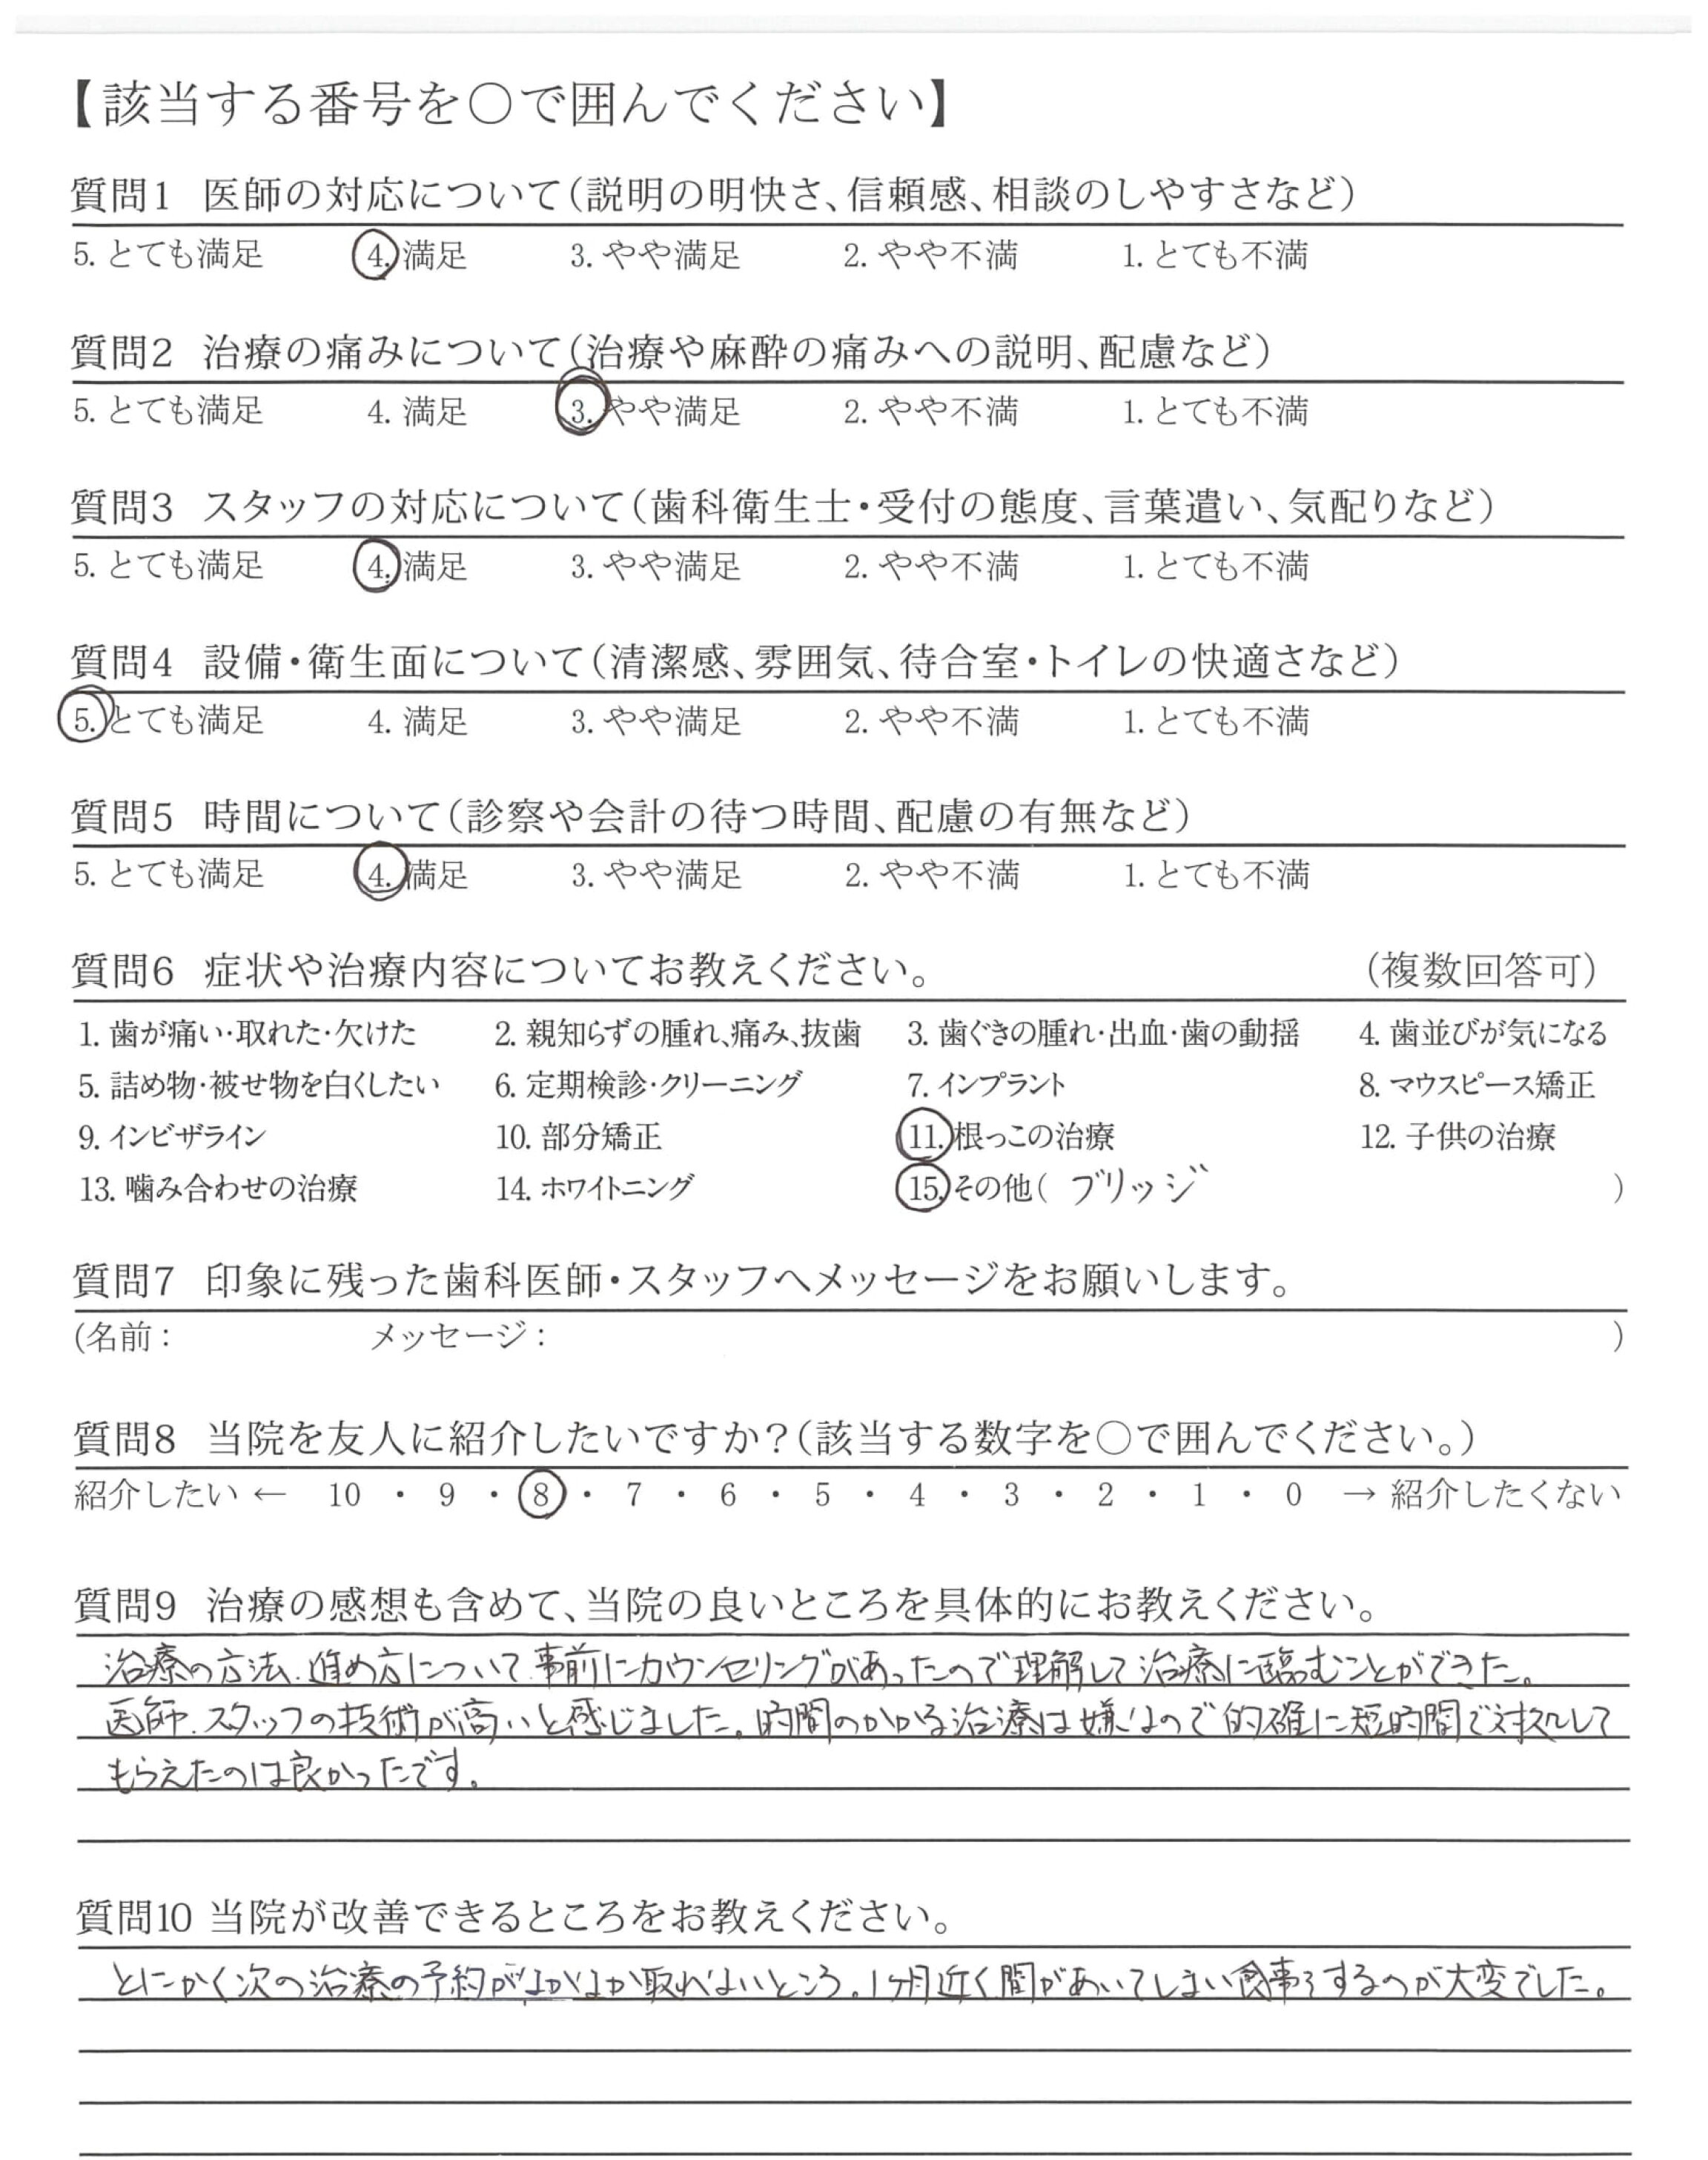 【該当する番号を○で囲んでください】
質問1 医師の対応について(説明の明快さ、信頼感、相談のしやすさなど)
5. とても満足 4. 満足 3. やや満足 2. やや不満 1. とても不満
質問2 治療の痛みについて(治療や麻酔の痛みへの説明、配慮など)
5. とても満足 4. 満足 3. やや満足 2. やや不満 1. とても不満
質問3 スタッフの対応について(歯科衛生士・受付の態度、言葉遣い、気配りなど)
5. とても満足 4. 満足 3. やや満足 2. やや不満 1. とても不満
質問4 設備・衛生面について(清潔感、雰囲気、待合室・トイレの快適さなど)
5. とても満足 4. 満足 3. やや満足 2. やや不満 1. とても不満
質問5 時間について(診察や会計の待つ時間、配慮の有無など)
5. とても満足 4. 満足 3. やや満足 2. やや不満 1. とても不満
質問6 症状や治療内容についてお教えください。 (複数回答可)
1. 歯が痛い・取れた・欠けた 2. 親知らずの腫れ、痛み、抜歯 3. 歯ぐきの腫れ・出血・歯の動揺 4. 歯並びが気になる
5. 詰め物・被せ物を白くしたい 6. 定期検診・クリーニング 7. インプラント 8. マウスピース矯正
9. インビザライン 10. 部分矯正 11. 根っこの治療 12. 子供の治療
13. 噛み合わせの治療 14. ホワイトニング 15. その他( ブリッジ )
質問7 印象に残った歯科医師・スタッフへメッセージをお願いします。
(名前: メッセージ: )
質問8 当院を友人に紹介したいですか?(該当する数字を○で囲んでください。)
紹介したい ← 10 ・ 9 ・ 8 ・ 7 ・ 6 ・ 5 ・ 4 ・ 3 ・ 2 ・ 1 ・ 0 → 紹介したくない
質問9 治療の感想も含めて、当院の良いところを具体的にお教えください。
治療の方法、進め方について事前にカウンセリングがあったので理解して治療に臨むことができた。
医師、スタッフの技術が高いと感じました。時間のかかる治療は嫌なので的確に短時間で対処して
もらえたのは良かったです。
質問10 当院が改善できるところをお教えください。
とにかく次の治療の予約がなかなか取れないところ。1ヶ月近く間があいてしまい食事をするのが大変でした。